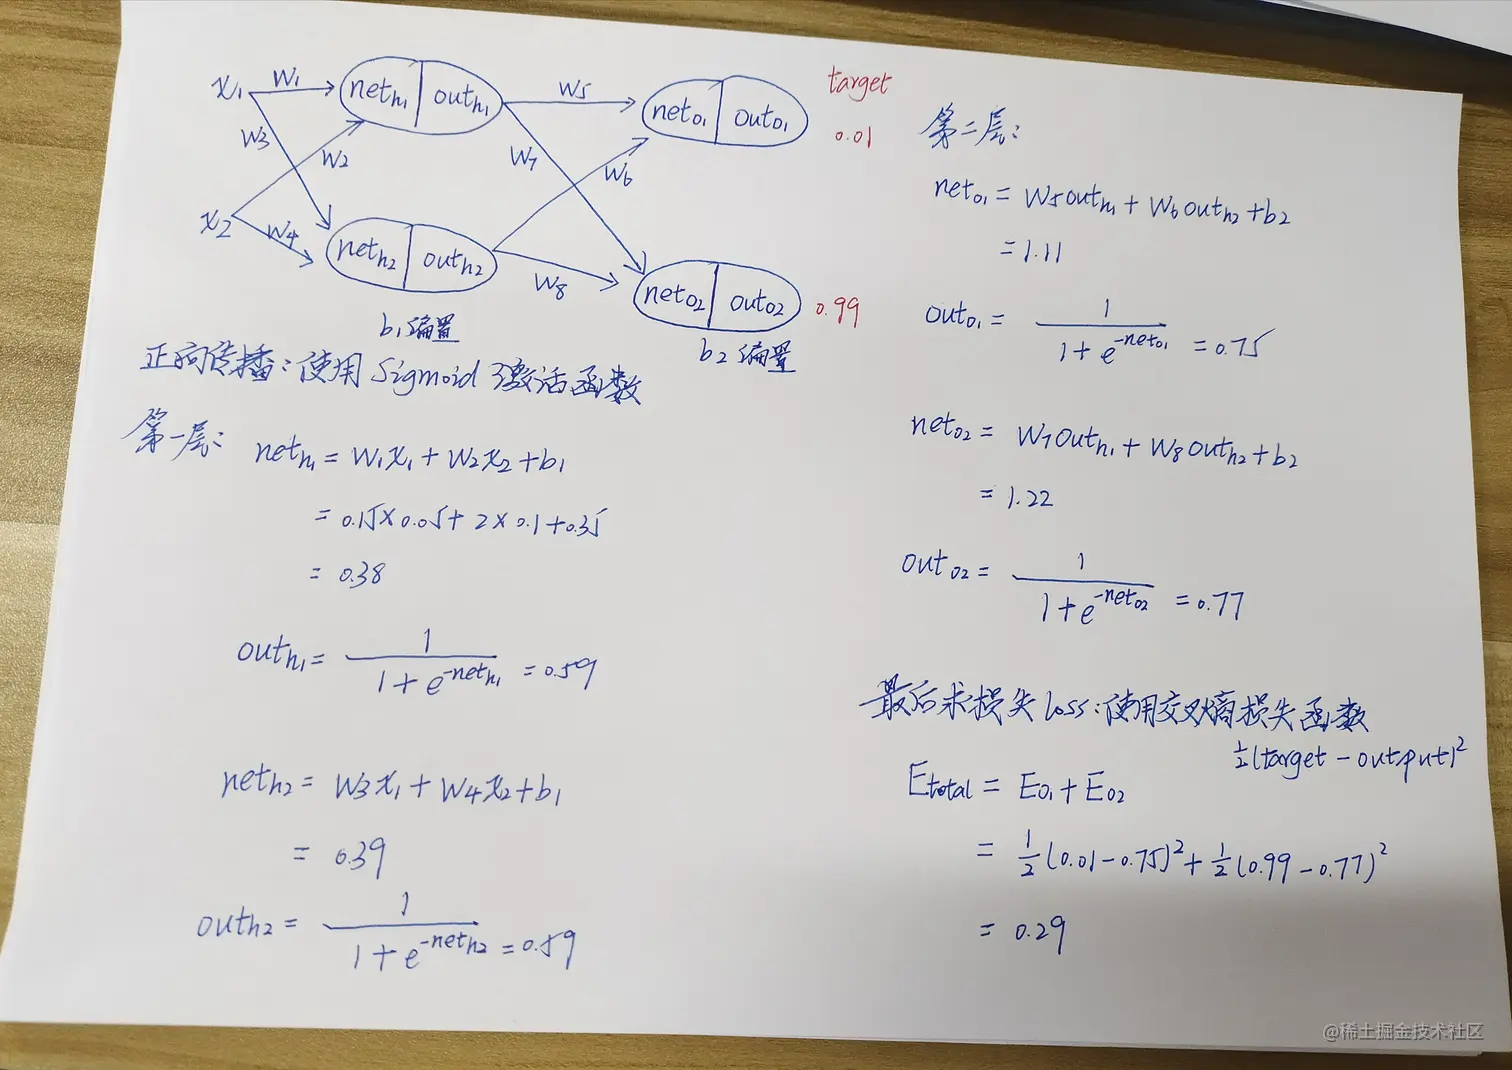 x₁ w₁ net_h₁ out_h₁ w₅ net_o₁ out_o₁ target
0.01
w₃ w₂ w₇ w₆
x₂ w₄ net_h₂ out_h₂ w₈ net_o₂ out_o₂ 0.99
b₁偏置 b₂偏置
正向传播：使用Sigmoid激活函数
第一层：
net_h₁ = w₁x₁ + w₂x₂ + b₁
= 0.15×0.05 + 2×0.1 + 0.35
= 0.38
out_h₁ = 1/(1+e^(-net_h₁)) = 0.59
net_h₂ = w₃x₁ + w₄x₂ + b₁
= 0.39
out_h₂ = 1/(1+e^(-net_h₂)) = 0.59
第二层：
net_o₁ = w₅out_h₁ + w₆out_h₂ + b₂
= 1.11
out_o₁ = 1/(1+e^(-net_o₁)) = 0.75
net_o₂ = w₇out_h₁ + w₈out_h₂ + b₂
= 1.22
out_o₂ = 1/(1+e^(-net_o₂)) = 0.77
最后求损失loss：使用交叉熵损失函数
½(target - output)²
E_total = E_o₁ + E_o₂
= ½(0.01-0.75)² + ½(0.99-0.77)²
= 0.29
@稀土掘金技术社区